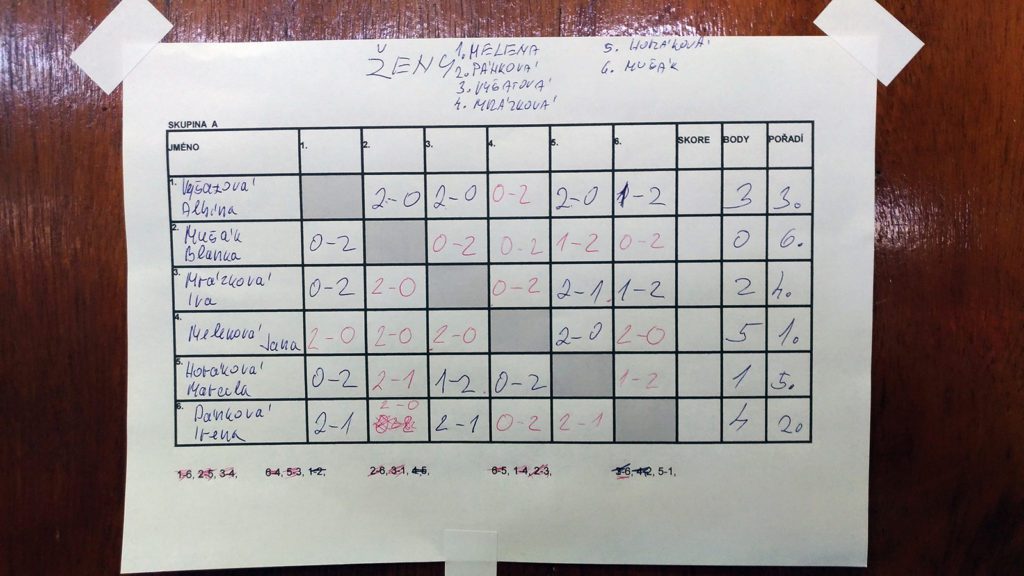 ŽENY 1. MELENA 5. HORÁKOVÁ
2. PÁNKOVÁ 6. MUŠÁK
3.
4. MRÁZKOVÁ
SKUPINA A
JMÉNO 1. 2. 3. 4. 5. 6. SKORE BODY POŘADÍ
1. Albína 2-0 2-0 0-2 2-0 1-2 3 3.
2. Mušák Blanka 0-2 0-2 0-2 1-2 0-2 0 6.
3. Mrázková Iva 0-2 2-0 0-2 2-1 1-2 2 4.
4. Melenová Jana 2-0 2-0 2-0 2-0 2-0 5 1.
5. Horáková Marcela 0-2 2-1 1-2 0-2 1-2 1 5.
6. Pánková Irena 2-1 2-0 2-1 0-2 2-1 4 2.
1-6, 2-5, 3-4, 6-4, 5-3, 1-2, 2-6, 3-1, 4-5, 6-5, 1-4, 2-3, 3-6, 4-2, 5-1,